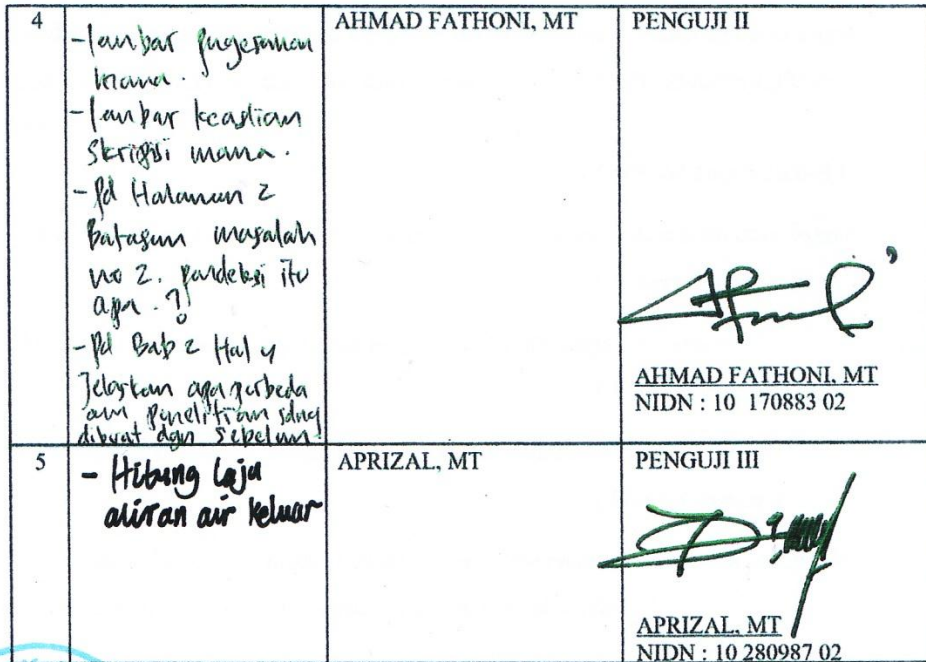 4
- lembar pengesahan
mana.
- lembar keaslian
Skripsi mana.
- Pd Halaman 2
Batasan masalah
no 2. pendeksi itu
apa.?
- Pd Bab 2 Hal 4
Jelaskan apa perbeda
aan Penelitian sdng
dibuat dgn Sebelum
AHMAD FATHONI, MT
PENGUJI II
AHMAD FATHONI, MT
NIDN : 10 170883 02
5
- Hitung laju
aliran air keluar
APRIZAL, MT
PENGUJI III
APRIZAL, MT
NIDN : 10 280987 02